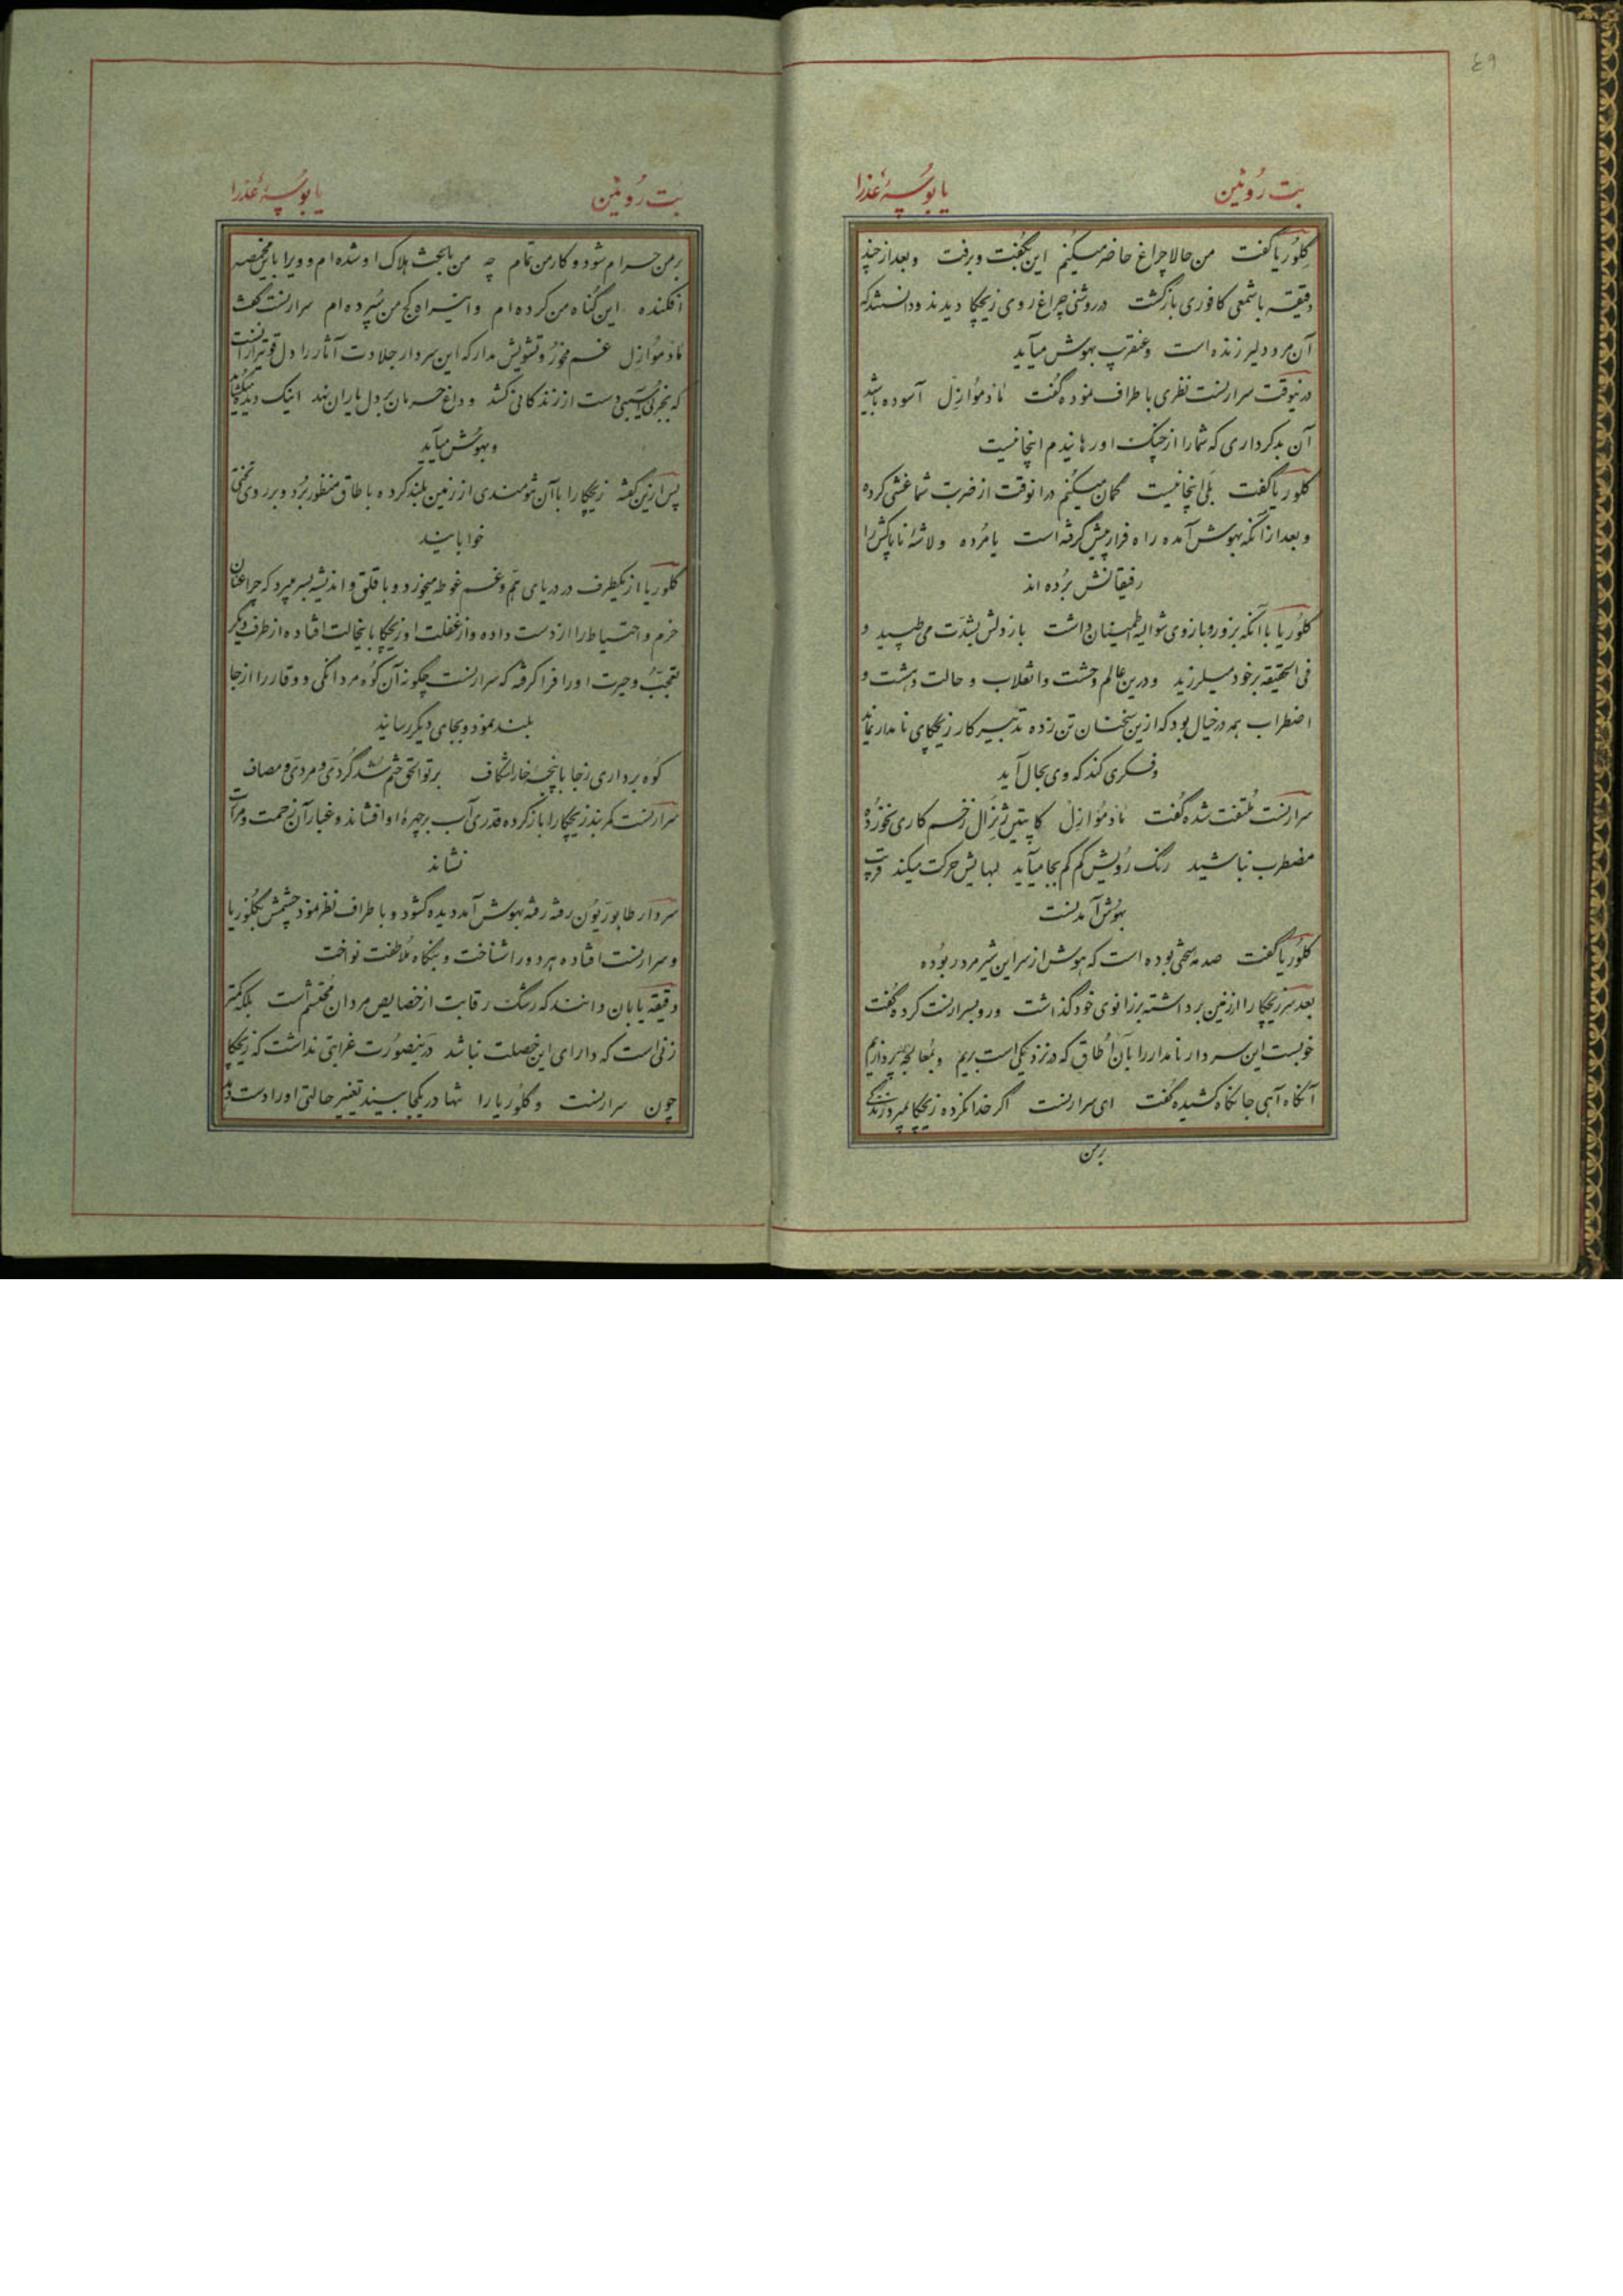 ٤٩
بت رُوئین
یا بوسهٔ عذرا
گلوریا گفت من حالا چراغ حاضر میکنم این بگفت و برفت و بعد از چند
دقیقه با شمعی کافوری بازگشت در روشنی چراغ روی زیچکا دیدند و دانستند که
آن مرد دلیر زنده است و عنقریب بهوش میآید
درینوقت سرارنست نظری باطراف نموده گفت مادموازل آسوده باشید
آن بدکرداری که شما را از چنک او رهانیدم اینجا نیست
گلوریا گفت بلی اینجا نیست گمان میکنم در انوقت از ضربت شما غشی کرده
و بعد از آنکه بهوش آمده راه فرار پیش گرفته است یا مُرده و لاشهٔ ناپاکش را
رفیقانش برُده اند
گلوریا با آنکه بزور و بازوی شوالیه اطمینان داشت باز دلش بشدّت می طپید و
فی الحقیقه بر خود میلرزید و درین عالم وحشت و انقلاب و حالت دهشت و
اضطراب همه در خیال بود که ازین سخنان تن زده تدبیر کار زیچکای نامدار نماید
و فکری کند که وی بحال آید
سرارنست ملتفت شده گفت مادموازل کاپیتن ژنرال زخم کاری نخورده
مضطرب نباشید رنک رُویش کم کم بجا میآید لبهایش حرکت میکند قریب
بهوش آمدنست
گلوریا گفت صدمه سختی بوده است که هوش از سر این شیرمرد ربوده
بعد سر زیچکا را از زمین برداشته بر زانوی خود گذاشت و رو بسرارنست کرده گفت
خوبست این سردار نامدار را بآن اُطاق که در نزدیکی است بریم و بمعالجه بپردازیم
آنگاه آهی جانکاه کشیده گفت ای سرارنست اگر خدا نکرده زیچکا بمیرد زندگی
بر من
بت رُوئین
یا بوسهٔ عذرا
بر من حرام شود و کار من تمام چه من باعث هلاک او شده ام و ویرا باین مخمصه
افکنده این گُناه من کرده ام و این راه کج من سُپرده ام سرارنست گفت
مادموازل غم مخور و تشویش مدار که این سردار جلادت آثار را دل قویتر از آنست
که بجزئی آسیبی دست از زندکانی کشد و داغ حرمان بر دل یاران نهد اینک دیده میگشاید
و بهوش میآید
پس ازین گفته زیچکا را با آن تنومندی از زمین بلند کرده باطاق منظور برُد و بر روی تختی
خوابانید
گلوریا از یکطرف در دریای همّ و غم غوطه میخورد و با قلق و اندیشه بسر میبرد که چرا عنان
حزم و احتیاط را از دست داده و از غفلت او زیچکا باینحالت افتاده از طرف دیگر
تعجّب و حیرت او را فرا گرفته که سرارنست چگونه آن کوه مردانگی و وقار را از جا
بلند نمود و بجای دیگر رسانید
کوه برداری ز جا با پنجهٔ خارا شکاف بر تو الحق ختم شد گردی و مردی و مصاف
سرارنست کمربند زیچکا را باز کرده قدری آب بر چهرهٔ او افشاند و غبار آن زحمت و مرارت
نشاند
سردار طابوریون رفته رفته بهوش آمد دیده گشود و باطراف نظر نمود چشمش بگلوریا
و سرارنست افتاده هر دو را شناخت و بنگاه ملاطفت نواخت
دقیقه یابان دانند که رشک رقابت از خصایص مردان محتشم است بلکه کمتر
زنی است که دارای این خصلت نباشد درینصورت غرابتی نداشت که زیچکا
چون سرارنست و گلوریا را تنها در یکجا بیند تغییر حالتی او را دست دهد